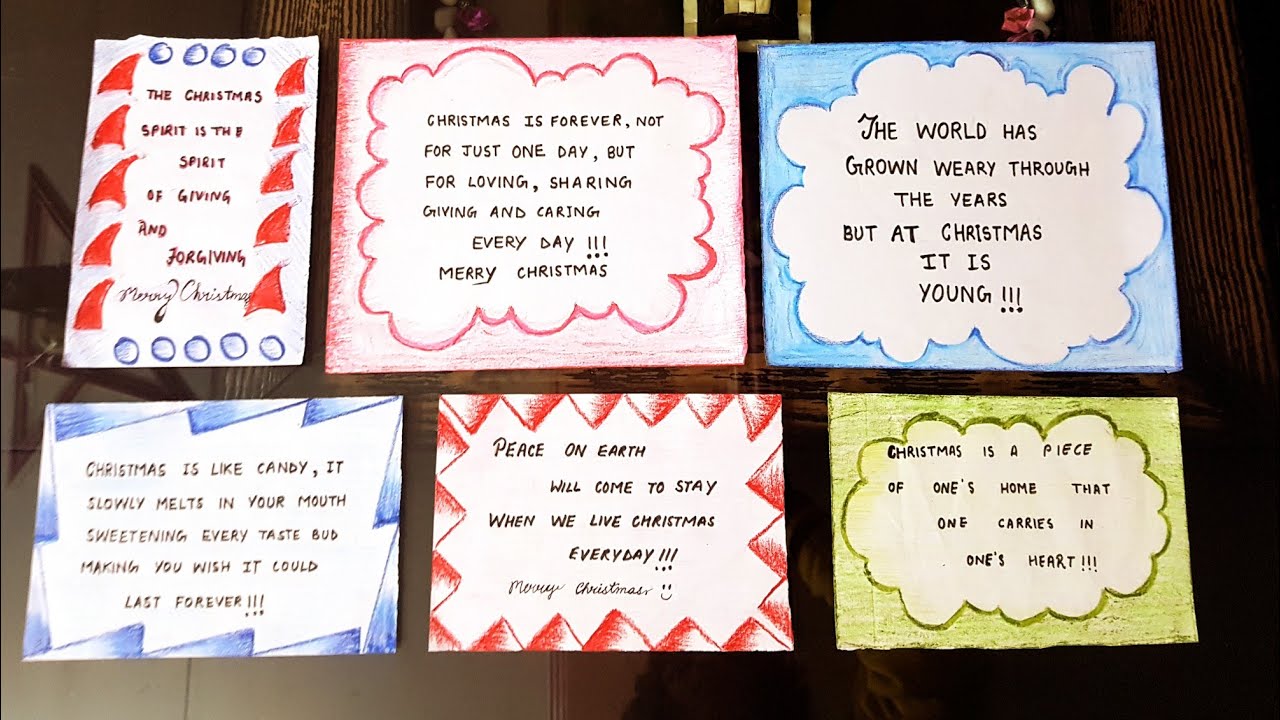 THE CHRISTMAS
SPIRIT IS THE
SPIRIT
OF GIVING
AND
FORGIVING
Merry Christmas
CHRISTMAS IS FOREVER, NOT
FOR JUST ONE DAY, BUT
FOR LOVING, SHARING
GIVING AND CARING
EVERY DAY !!!
MERRY CHRISTMAS
THE WORLD HAS
GROWN WEARY THROUGH
THE YEARS
BUT AT CHRISTMAS
IT IS
YOUNG !!!
CHRISTMAS IS LIKE CANDY, IT
SLOWLY MELTS IN YOUR MOUTH
SWEETENING EVERY TASTE BUD
MAKING YOU WISH IT COULD
LAST FOREVER !!!
PEACE ON EARTH
WILL COME TO STAY
WHEN WE LIVE CHRISTMAS
EVERYDAY !!!
Merry Christmas
CHRISTMAS IS A PIECE
OF ONE'S HOME THAT
ONE CARRIES IN
ONE'S HEART !!!